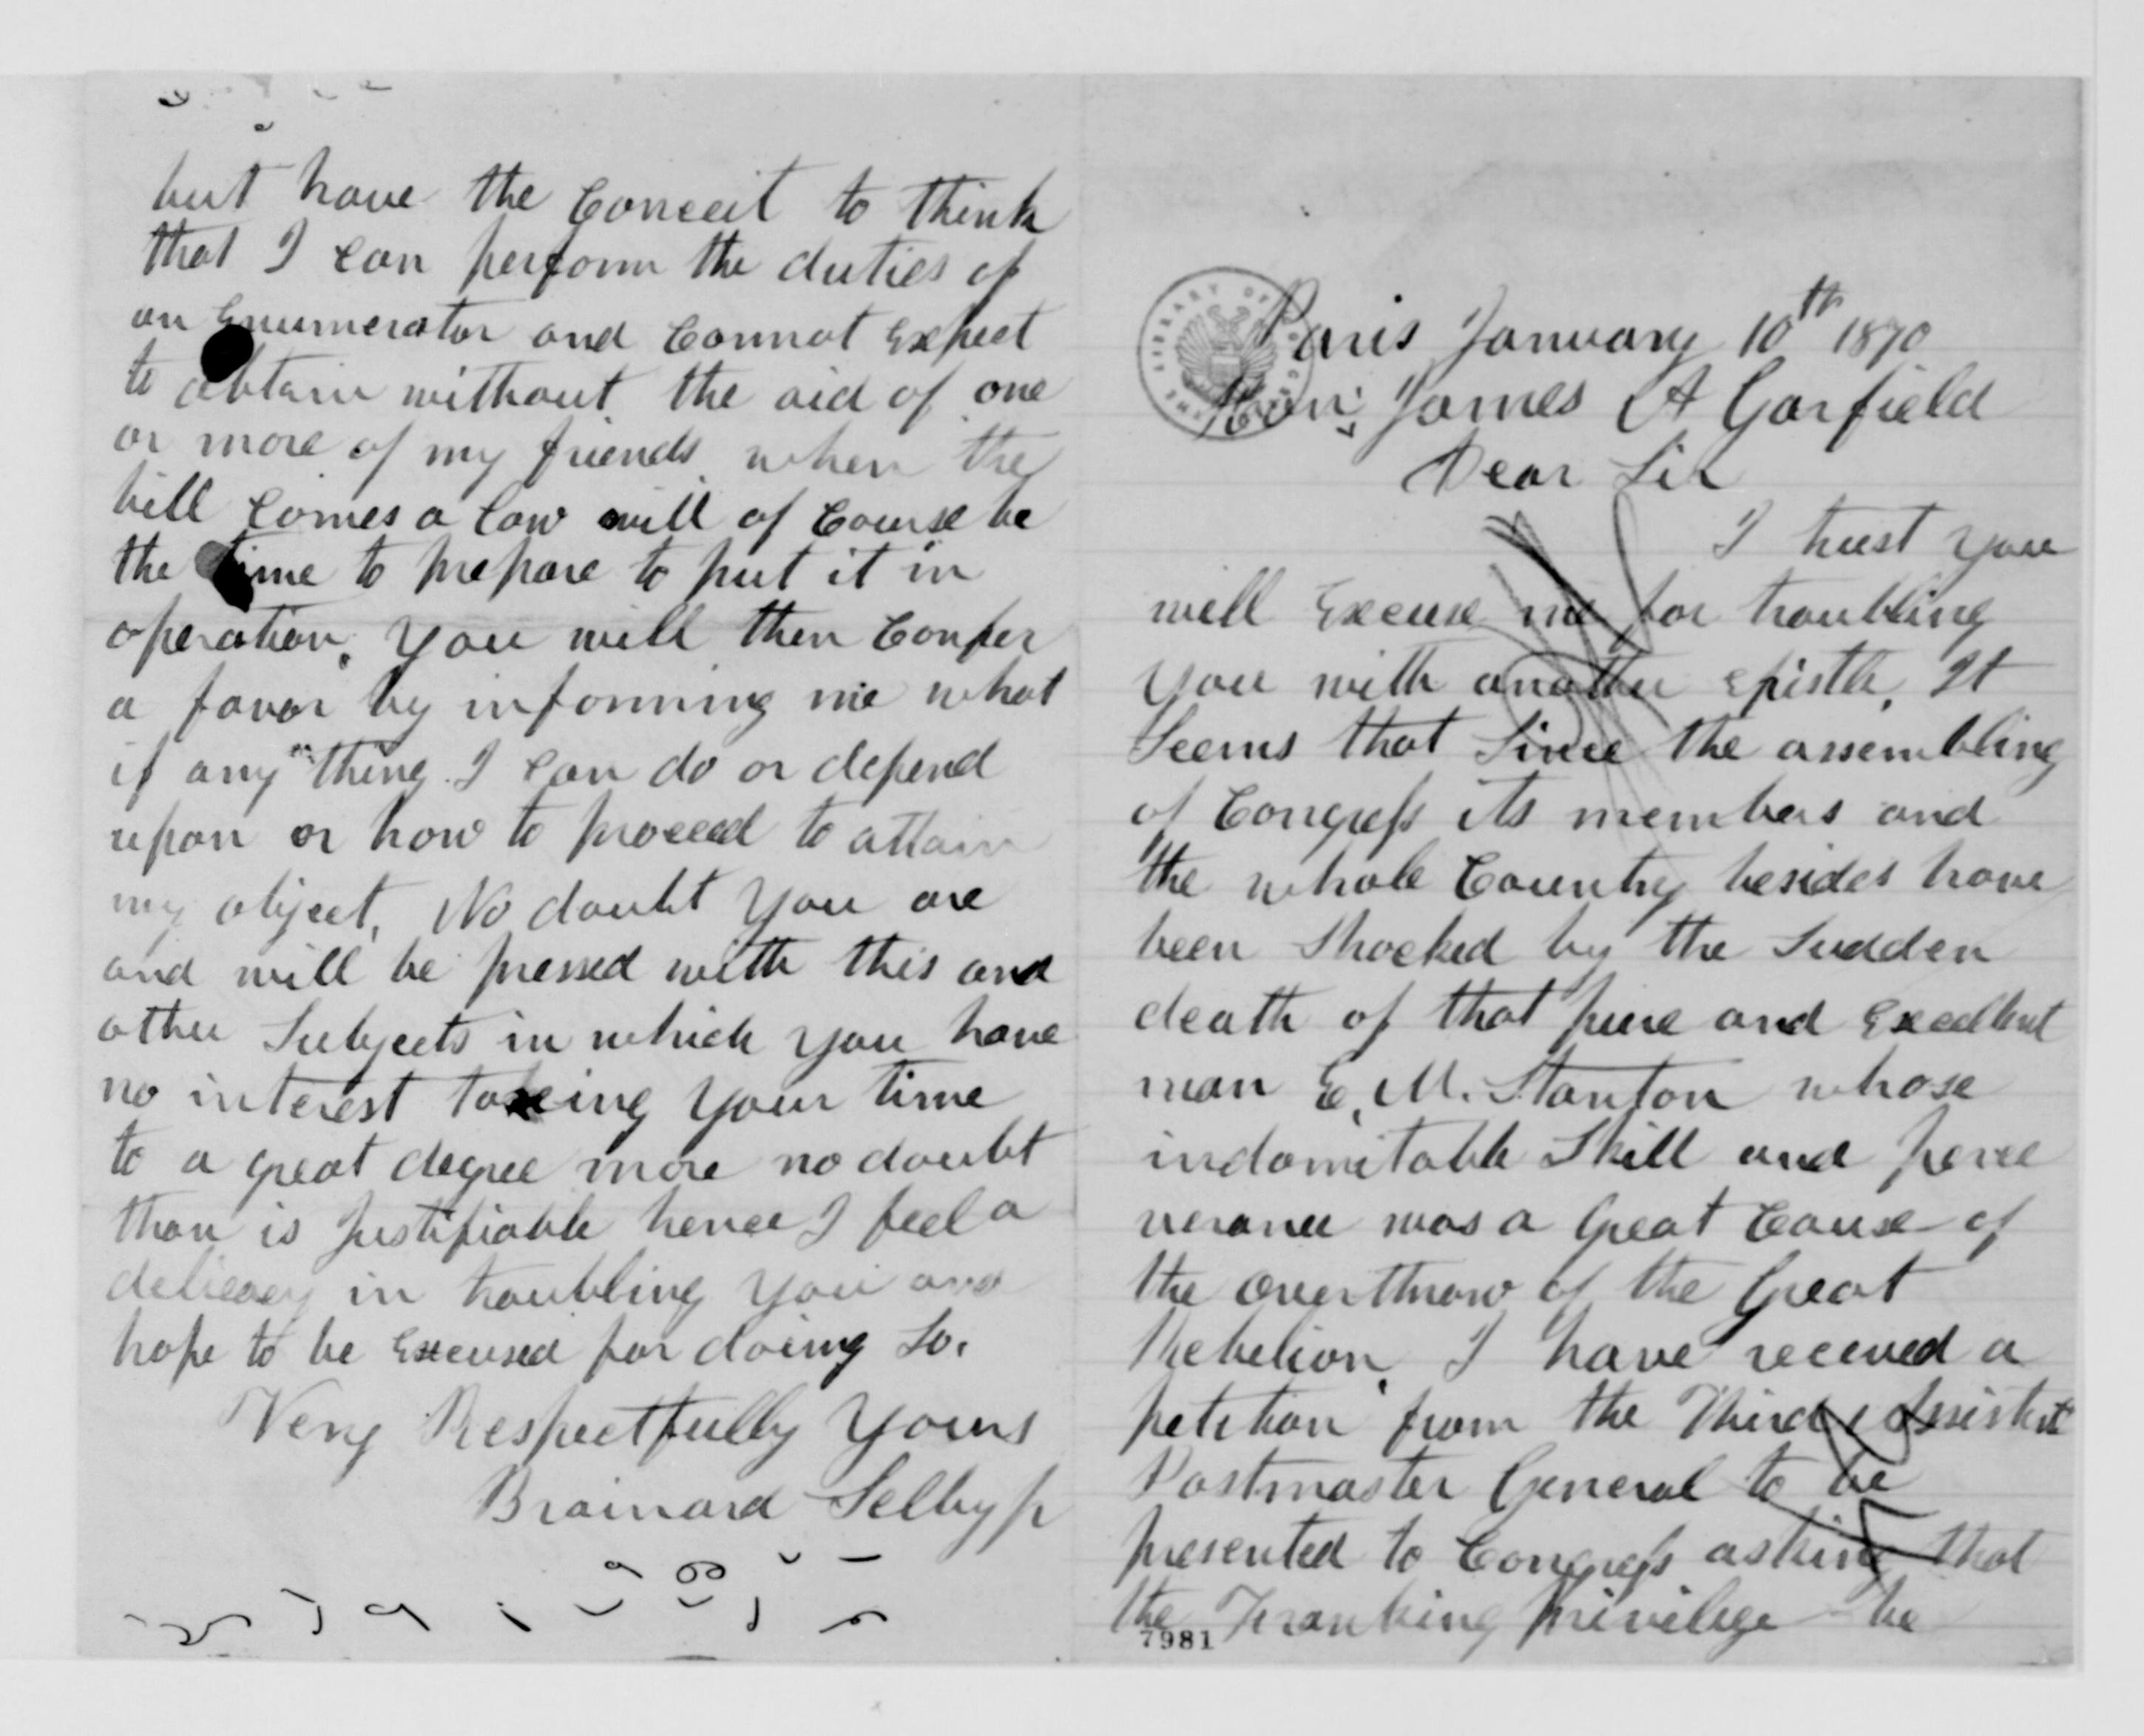 but have the Conceit to think
that I can perform the duties of
an Enumerator and Cannot Expect
to obtain without the aid of one
or more of my friends when the
bill Comes a law will of Course be
the time to prepare to put it in
operation. you will then Confer
a favor by informing me what
if any thing I can do or depend
upon or how to proceed to attain
my object. No doubt you are
and will be pressed with this and
other Subjects in which you have
no interest taking your time
to a great degree more no doubt
than is Justifiable hence I feel a
delicacy in troubling you and
hope to be Excused for doing So.
Very Respectfully Yours
Brainard Selby Jr
Paris January 10th 1870
Hon; James A Garfield
Dear Sir
I trust you
will Excuse me for troubling
you with another Epistle, It
Seems that Since the assembling
of Congress its members and
the whole Country besides have
been Shocked by the Sudden
death of that pure and Excellent
man E. M. Stanton whose
indomitable Skill and perse
verance was a Great Cause of
the overthrow of the Great
Rebelion, I have received a
petition from the Third Assistant
Postmaster General to be
presented to Congress asking that
the Franking privilege be
7981